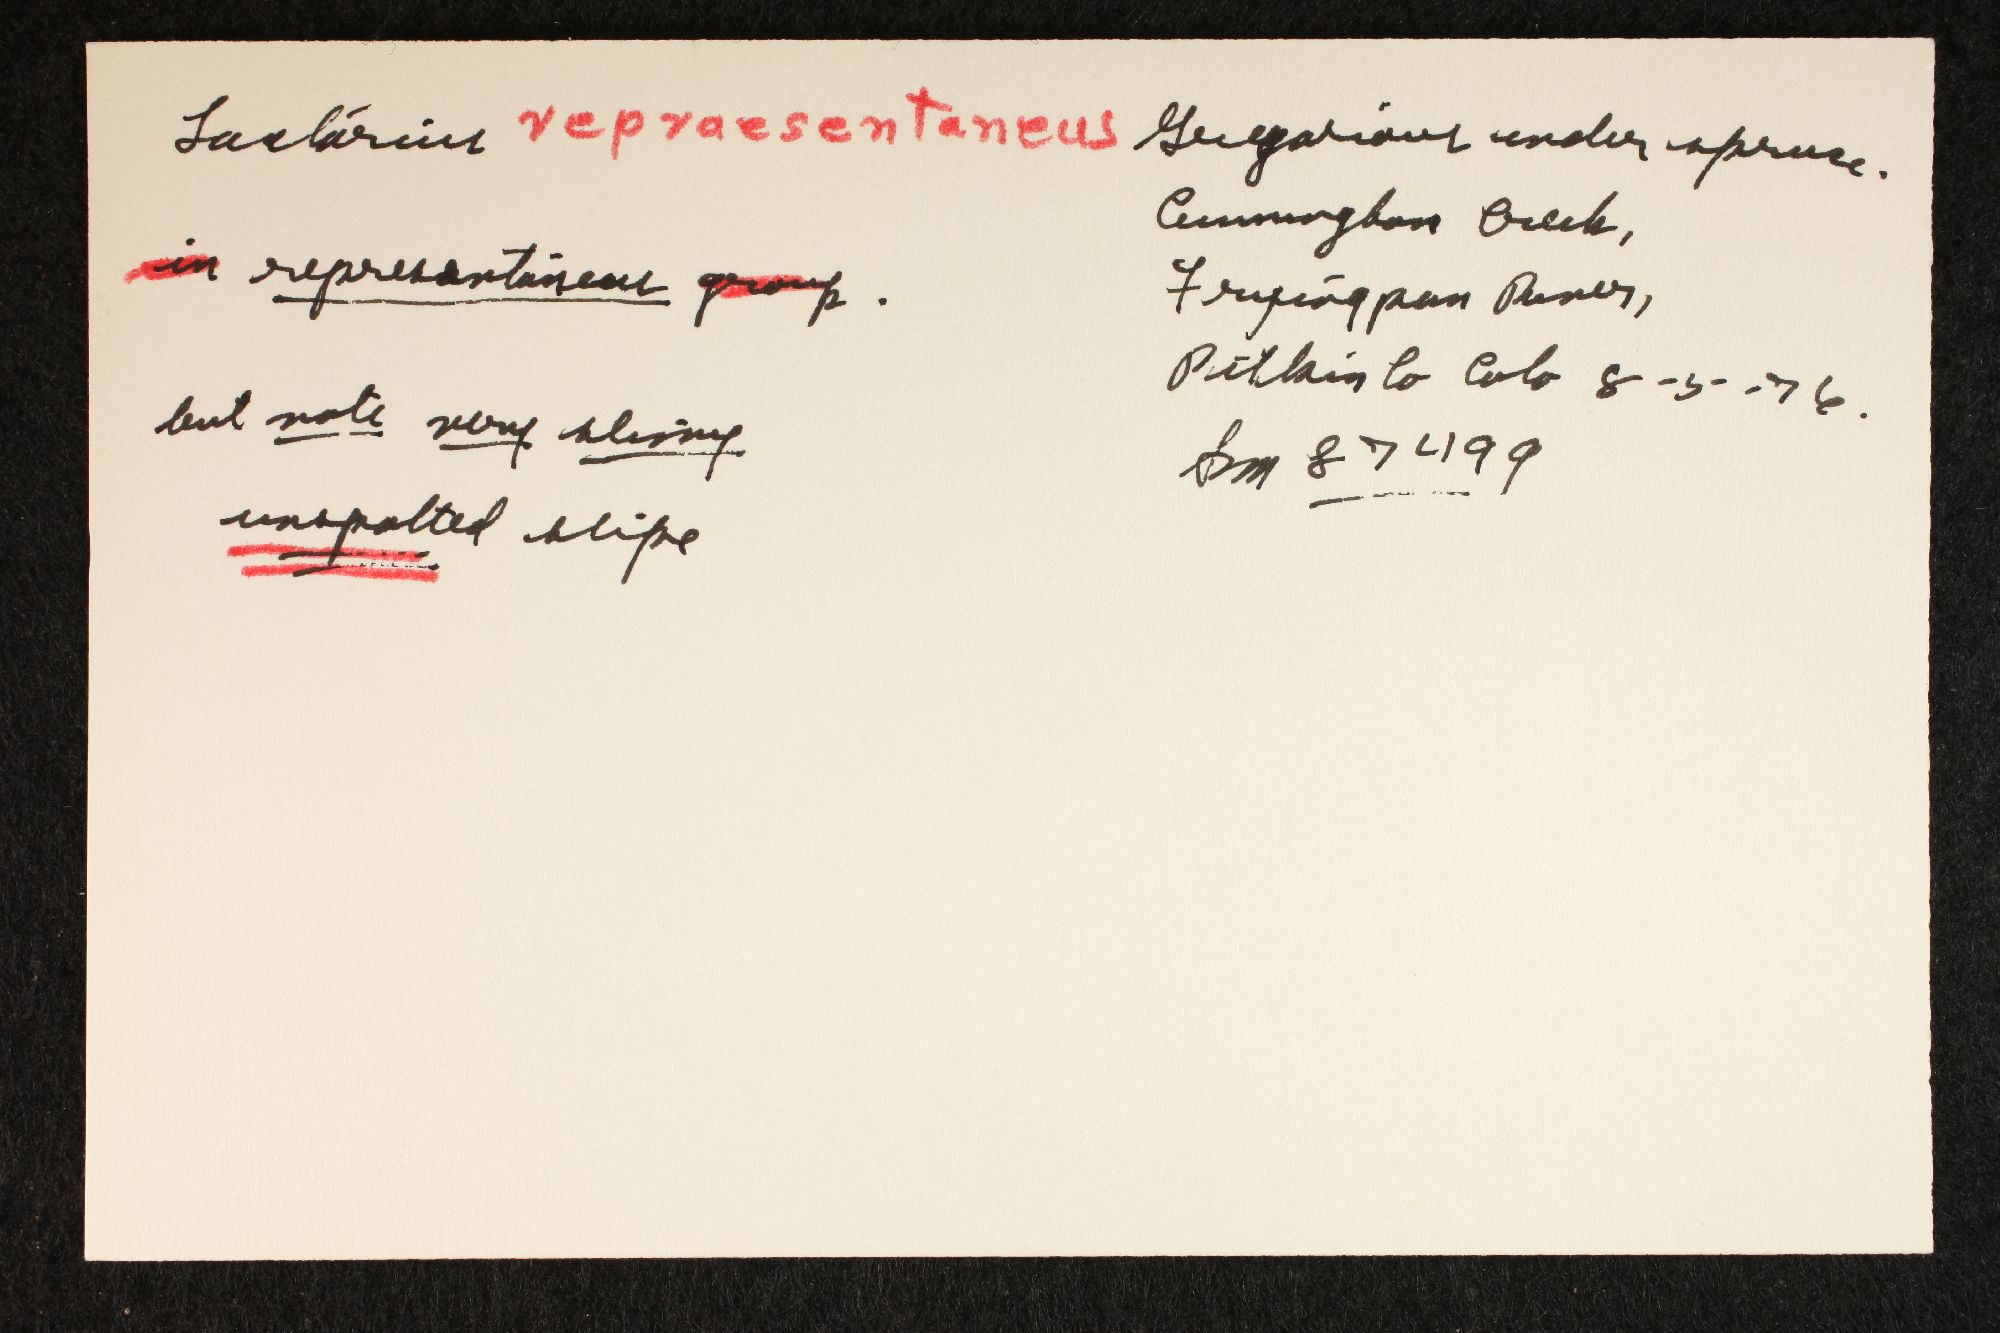 Lactarius repraesentaneus
in representaneus group.
but note very slimy
unspotted stipe
Gregarious under spruce.
Cunningham Creek,
Fryingpan River,
Pitkin Co Colo 8-5-76.
Sm 87499